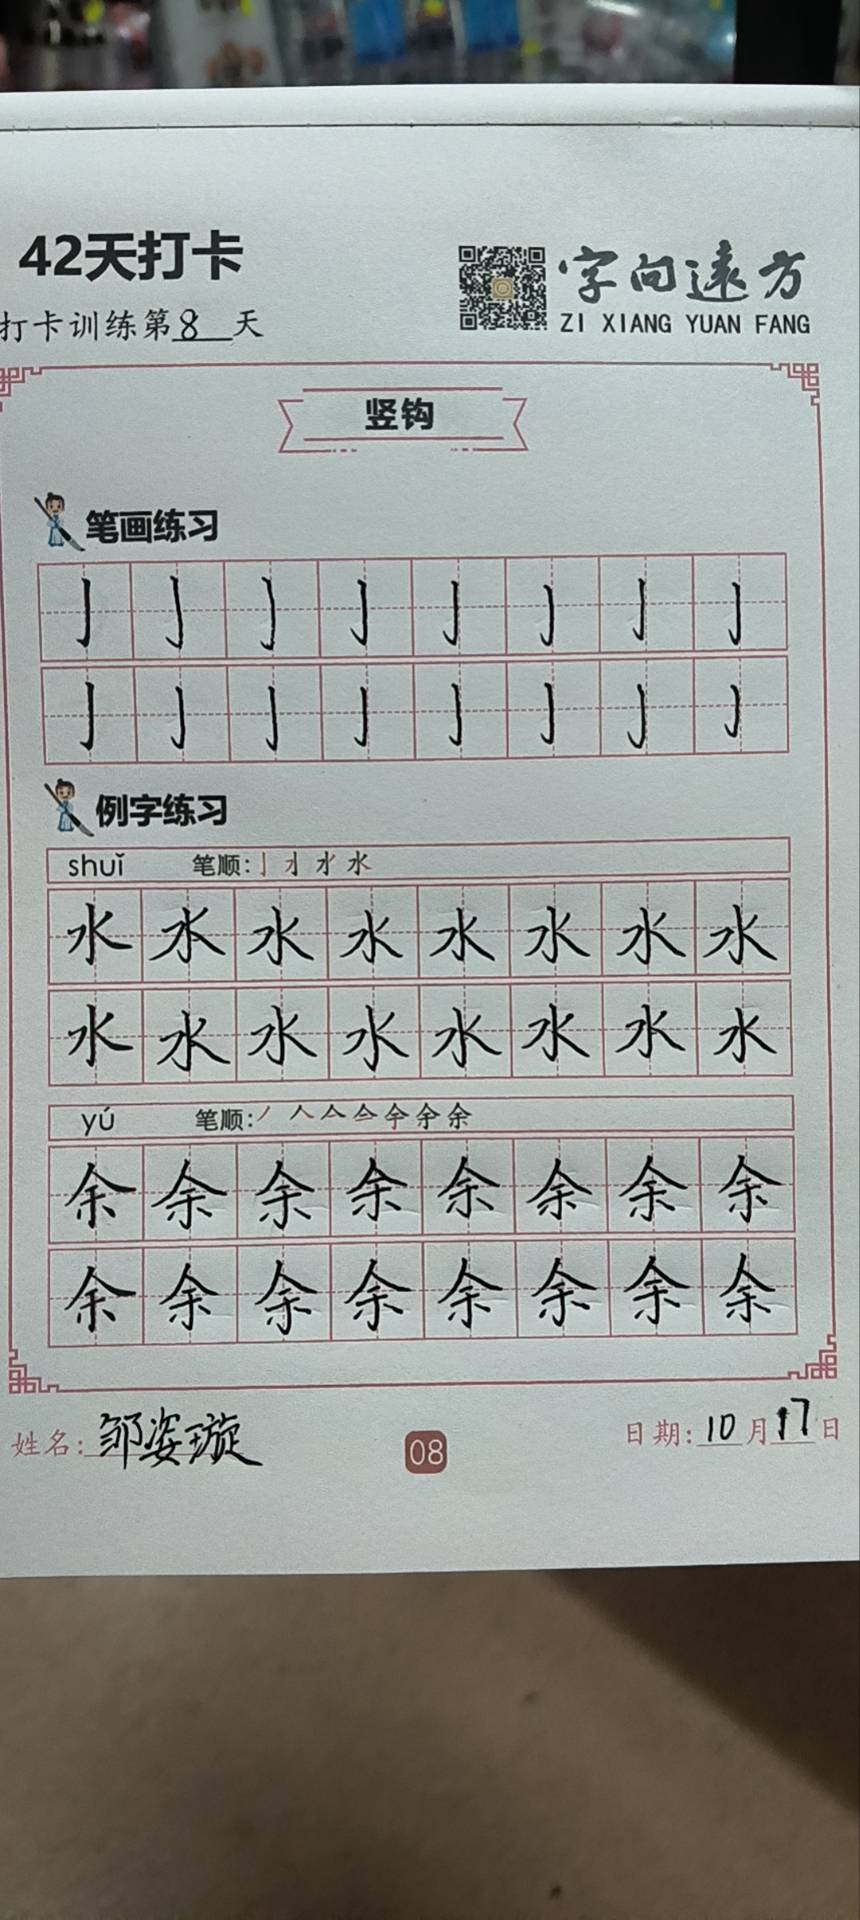 42天打卡
打卡训练第8天
字向远方
ZI XIANG YUAN FANG
竖钩
笔画练习
亅亅亅亅亅亅亅亅
亅亅亅亅亅亅亅亅
例字练习
shuǐ 笔顺:
水水水水水水水水
水水水水水水水水
yú 笔顺:
余余余余余余余余
余余余余余余余余
姓名:邹姿璇
08
日期:10月17日